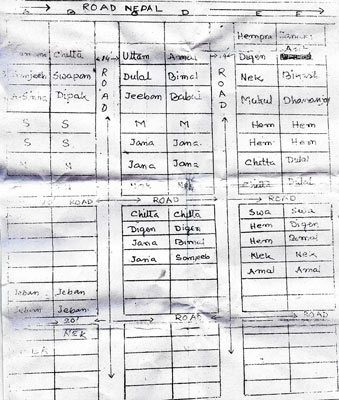 ROAD NEPAL
D E E
Hempra
Chitta 14 Uttam Amal Digen
Swapan R Dulal Bimal R Nek
Dipak O Jeeban O Mukul Dhananjoy
A A
D D
S S M M Hem Hem
S S Jana Jana Hem Hem
Jana Jana Chitta Dulal
Chitta Dulal
ROAD ROAD ROAD
Chitta Chitta Swa Swa
Digen Digen Hem Digen
Jana Bimal Hem Bimal
Jana Sanjeeb Nek Nek
Amal Amal
Jeban Jeban
Jeban Jeban
20' ROAD ROAD
NEK